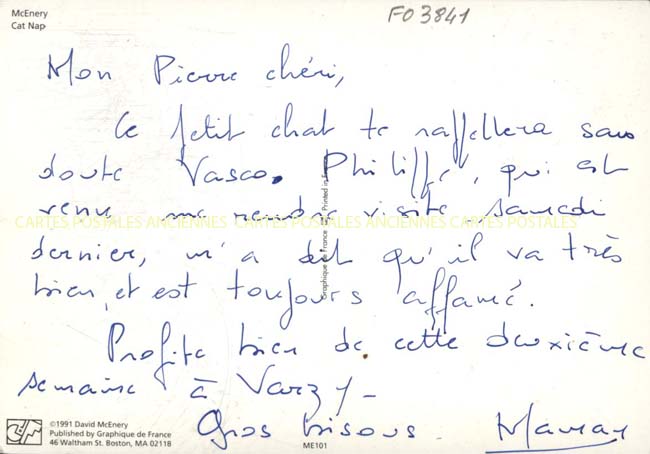 McEnery
Cat Nap
FO 3841
Mon Pierre chéri,
Ce petit chat te rappellera sans
doute Vasco. Philippe, qui est
venu me rendre visite samedi
CARTES POSTALES ANCIENNES CARTES POSTALES ANCIENNES CARTES POSTALES
dernier, m'a dit qu'il va très
bien, et est toujours affamé.
Profite bien de cette deuxième
semaine à Varzy_
Gros bisous Maman
©1991 David McEnery
Published by Graphique de France
46 Waltham St. Boston, MA 02118
ME101
Graphique de France Printed in France